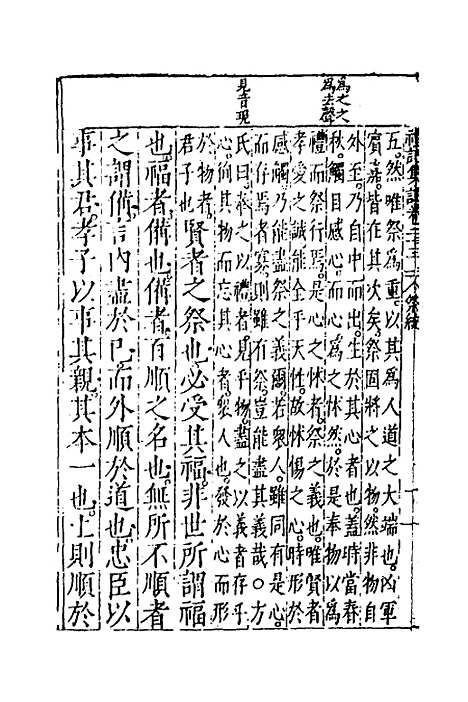 禮記集說卷
祭統
為之之
為去聲
見音現
五。然唯祭為重。以其為人道之大端也。凶軍
賓嘉。皆在其次矣。祭固將之以物。然非物自
外至。乃自中而出。生於其心者也。蓋時當春
秋。觸目感心。而心為之怵然。於是奉物以為
禮而祭行焉。是心之怵者。祭之義也。唯賢者
孝愛之誠。能全乎天性。故怵惕之心。時形於
感觸。乃能盡祭之義爾。若衆人。雖同有是心。
而存焉者寡。則雖有祭。豈能盡其義哉。○方
氏曰。奉之以禮者。見乎物。盡之以義者。存乎
心。徇其物而忘其心者。衆人也。發於心而形
於物者。
君子也
賢者之祭也。必受其福。非世所謂福
也。福者。備也。備者。百順之名也。無所不順者
之謂備。言內盡於己。而外順於道也。忠臣以
事其君。孝子以事其親。其本一也。上則順於